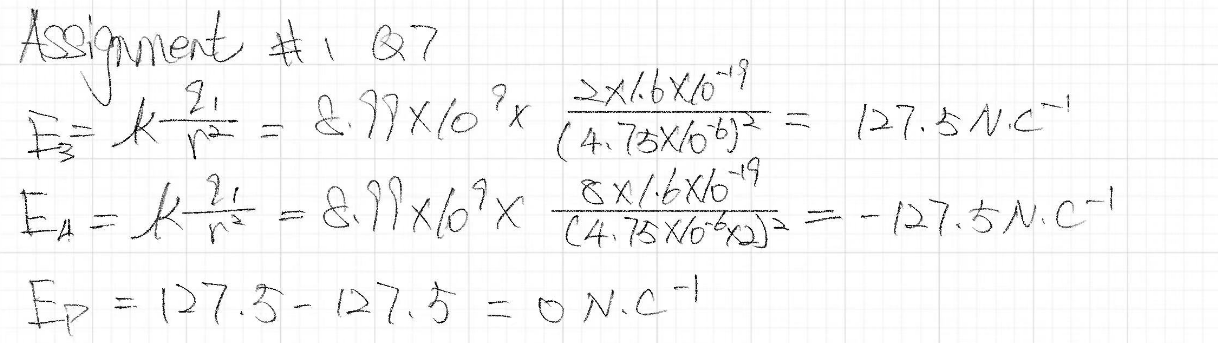 Assignment #1 Q7
E₃ = k q₁/r² = 8.99×10⁹ × (2×1.6×10⁻¹⁹)/(4.75×10⁻⁶)² = 127.5 N.C⁻¹
E₄ = k q₁/r² = 8.99×10⁹ × (8×1.6×10⁻¹⁹)/(4.75×10⁻⁶×2)² = -127.5 N.C⁻¹
Eₚ = 127.5 - 127.5 = 0 N.C⁻¹